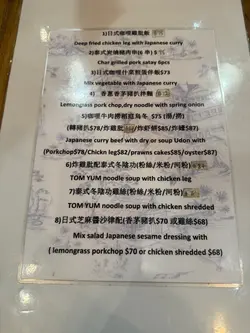 1)日式咖喱雞髀飯
Deep fried chicken leg with Japanese curry
2)泰式炭燒豬肉串(6串)
Char grilled pork satay 6pcs
3)日式咖喱什菜羽蛋伴飯$73
Mix vegetable with Japanese curry
4) 香蔥香茅豬扒拌麵
Lemongrass pork chop,dry noodle with spring onion
5)咖喱牛肉撈稻庭烏冬 $75
(轉豬扒$78/炸雞髀 /炸蝦餅$85/炸蠔$87)
Japanese curry beef with dry or soup Udon with
(Porkchop$78/Chickn leg$82/prawns cakes$85/oyster$87)
6)炸雞髀配泰式冬陰功(粉絲/米粉/河粉)
TOM YUM noodle soup with chicken leg
7)泰式冬陰功雞絲(粉絲/米粉/河粉)
TOM YUM noodle soup with chicken shredded
8)日式芝麻醬沙律配(香茅豬扒$70 或雞絲$68)
Mix salad Japanese sesame dressing with
( lemongrass porkchop $70 or chicken shredded $68)